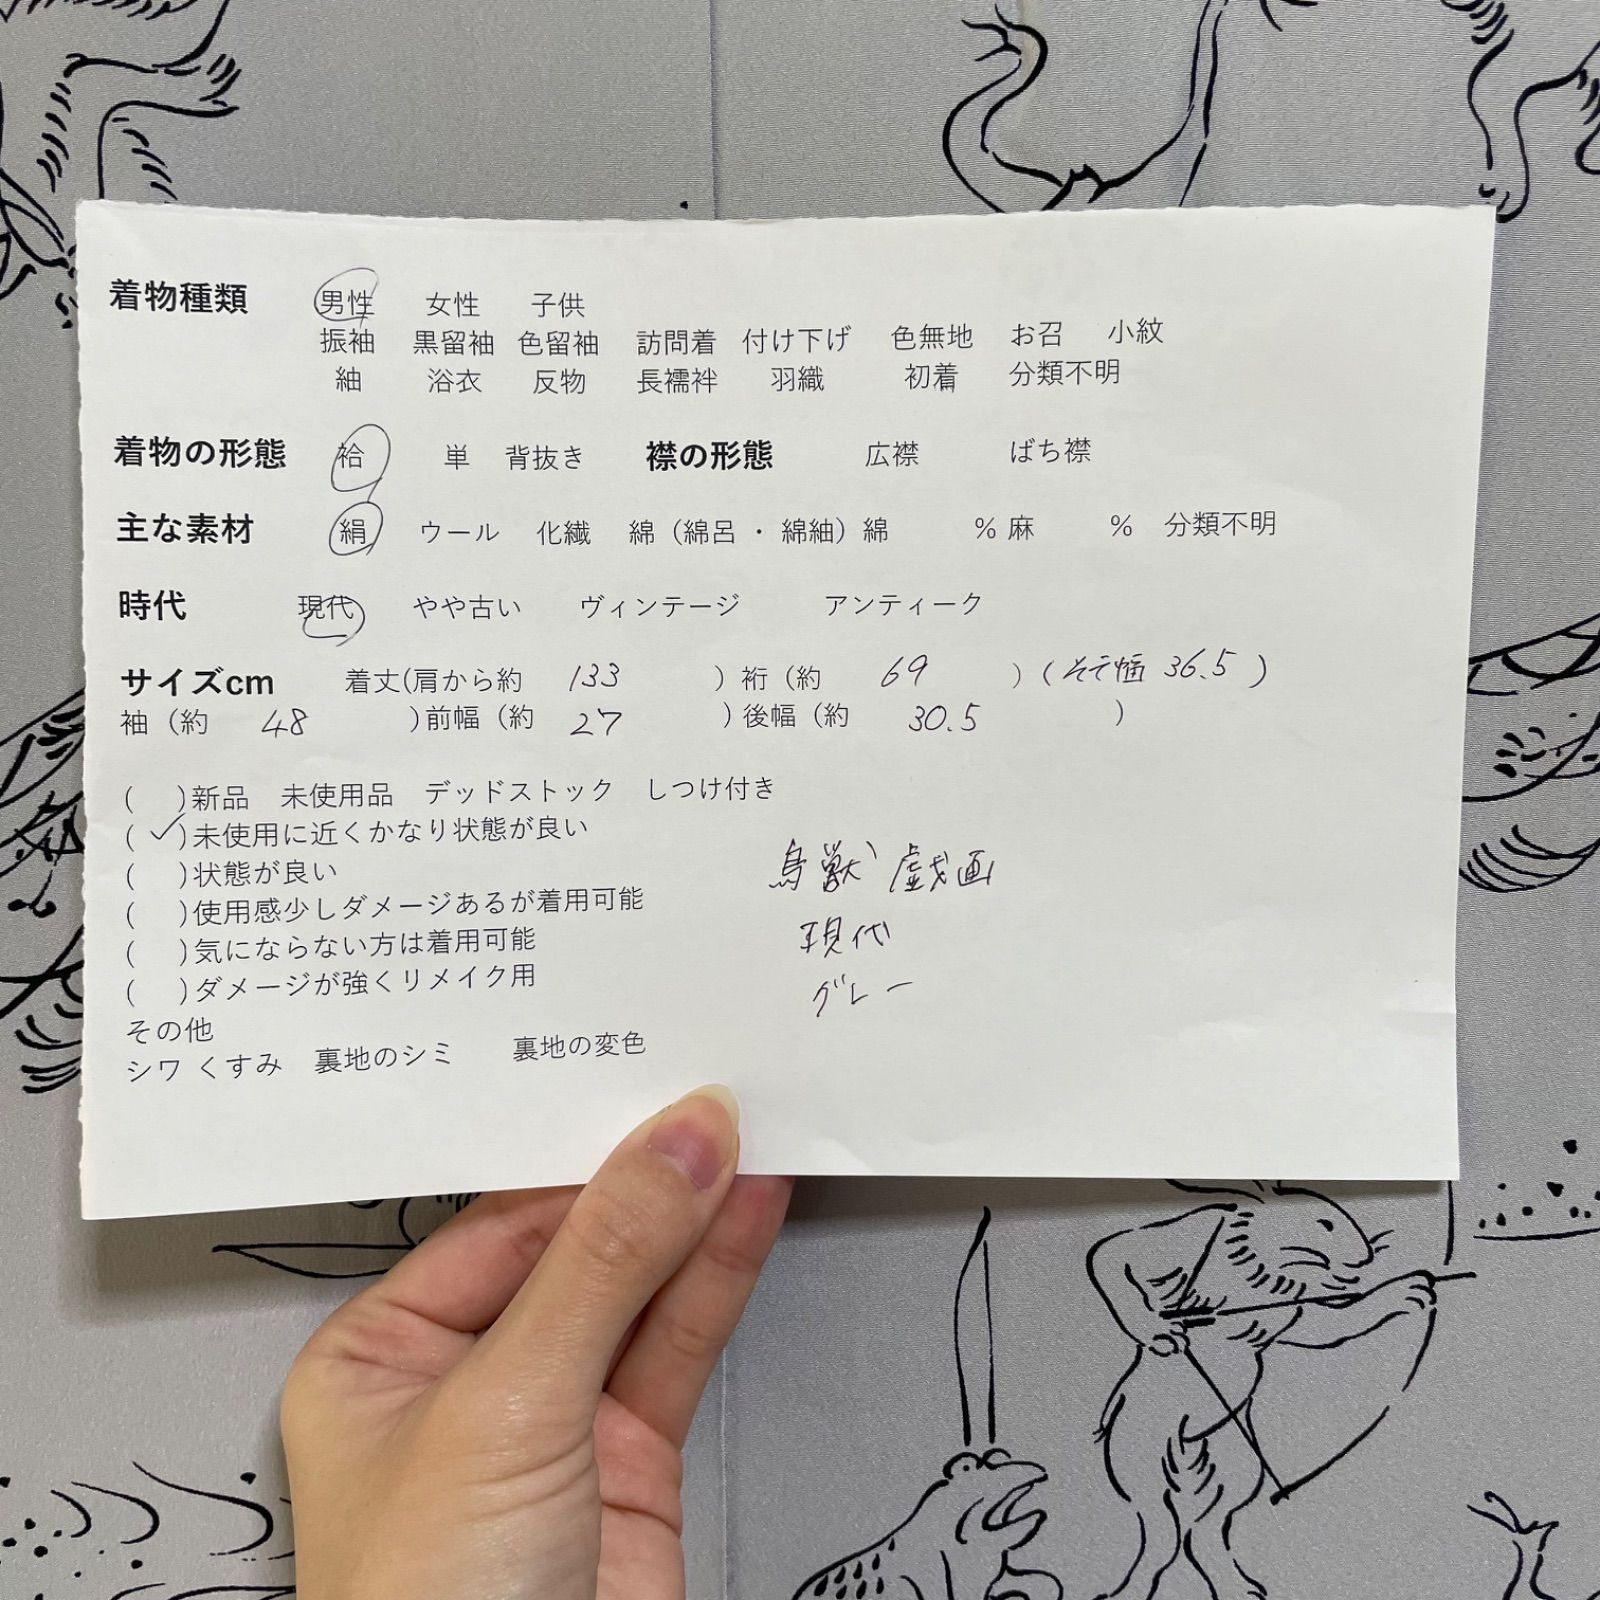 着物種類 男性 女性 子供
振袖 黒留袖 色留袖 訪問着 付け下げ 色無地 お召 小紋
紬 浴衣 反物 長襦袢 羽織 初着 分類不明
着物の形態 袷 単 背抜き 襟の形態 広襟 ばち襟
主な素材 絹 ウール 化繊 綿（綿呂・綿紬）綿 % 麻 % 分類不明
時代 現代 やや古い ヴィンテージ アンティーク
サイズcm 着丈(肩から約 133 ) 裄（約 69 ）(そで幅 36.5 )
袖（約 48 )前幅（約 27 ) 後幅（約 30.5 ）
( )新品 未使用品 デッドストック しつけ付き
( ✓)未使用に近くかなり状態が良い
( )状態が良い
( )使用感少しダメージあるが着用可能
( )気にならない方は着用可能
( )ダメージが強くリメイク用
その他
シワ くすみ 裏地のシミ 裏地の変色
鳥獣戯画
現代
グレー